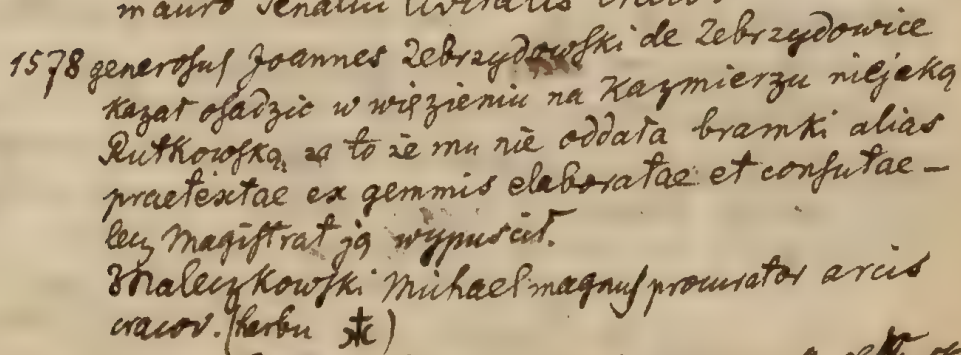 1578 generosus Joannes Zebrzydowski de Zebrzydowice
kazał osadzic w więzieniu na Kazmierzu niejaką
Rutkowską, za to że mu nie oddała bramki alias
praetextae ex gemmis elaboratae et consutae –
lecz Magistrat ją wypuścił.
Maleczkowski Michael magnus procurator arcis
cracov. (herbu )